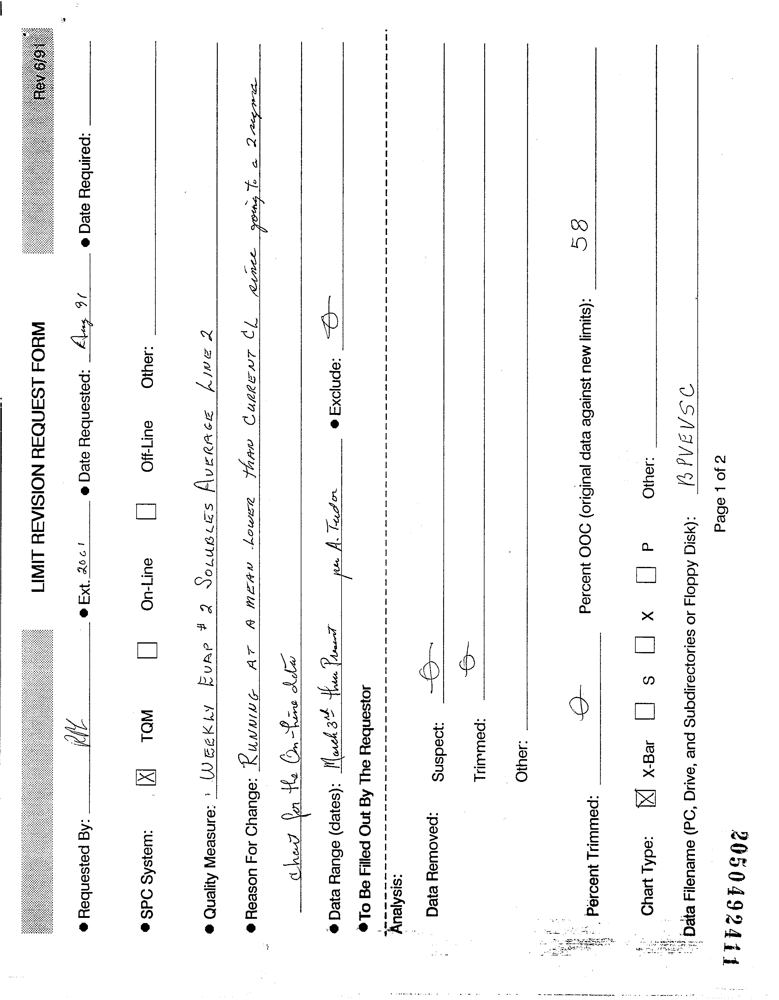 LIMIT REVISION REQUEST FORM Rev 6/91
● Requested By: ● Ext. 2061 ● Date Requested: Aug 91 ● Date Required:
● SPC System: [X] TQM [ ] On-Line [ ] Off-Line Other:
● Quality Measure: WEEKLY EVAP # 2 SOLUBLES AVERAGE LINE 2
● Reason For Change: RUNNING AT A MEAN LOWER THAN CURRENT CL since going to a 2 sigma
chart for the On-line data
● Data Range (dates): March 3rd thru Present per A. Tudor ● Exclude: 0
● To Be Filled Out By The Requestor
Analysis:
Data Removed: Suspect: 0
Trimmed: 0
Other:
Percent Trimmed: 0 Percent OOC (original data against new limits): 58
Chart Type: [X] X-Bar [ ] S [ ] X [ ] P Other:
Data Filename (PC, Drive, and Subdirectories or Floppy Disk): BPVEVSC
Page 1 of 2
2050492411